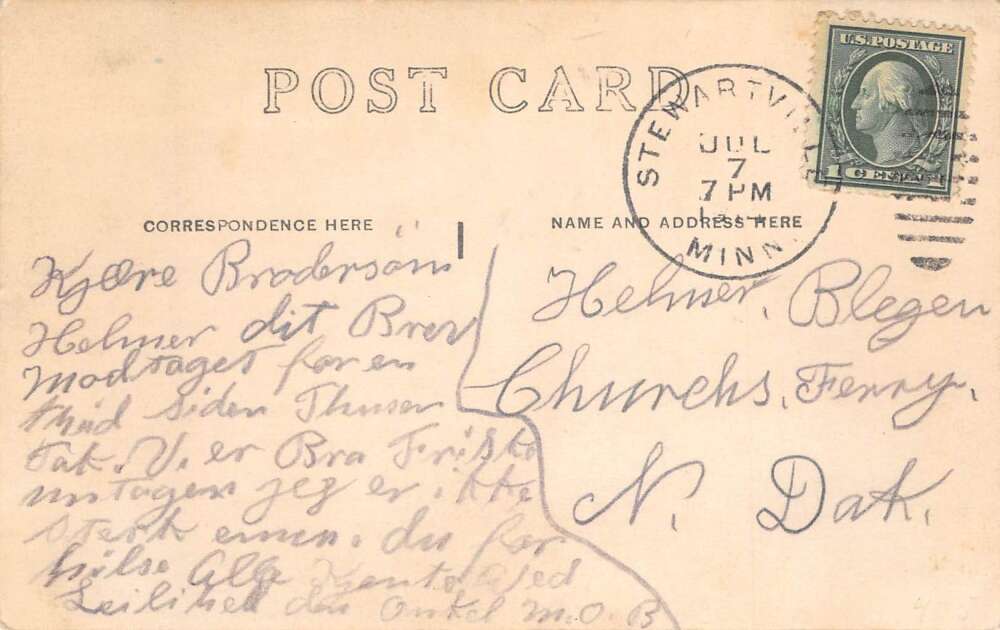 POST CARD
U.S. POSTAGE
1 CENT 1
STEWARTVILLE
JUL
7
7 PM
MINN.
CORRESPONDENCE HERE
NAME AND ADDRESS HERE
Kjære Brodersön
Helmer dit Brev
Modtaget for en
thid siden Thusen
Tak. Vi er Bra Friske
untagen jeg er ikke
sterk du for
hilse Alle Kjente Ved
Leilihed din Onkel M.O.B
Helmer. Blegen
Churchs. Ferry.
N. Dak.